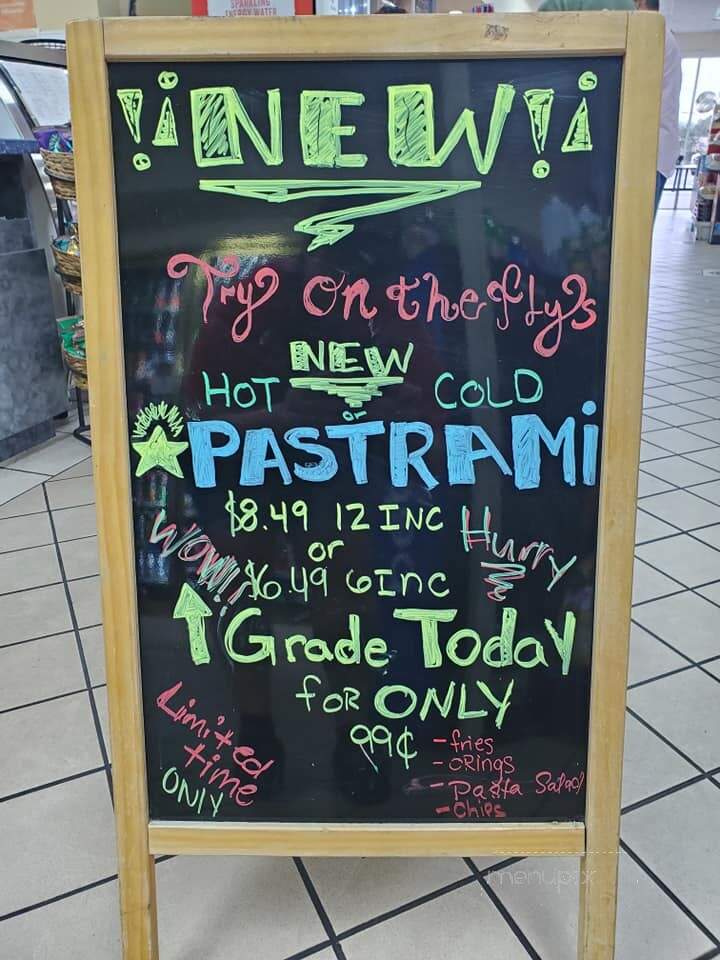 SPARKLING
ENERGY WATER
!¡NEW!¡
Try On the fly's
NEW
HOT or COLD
PASTRAMi
$8.49 12 INC
or
$6.49 6 Inc
WOW!!
Hurry
↑Grade Today
foR ONLY
99¢
-fries
-ORings
-Pasta Salad
-Chips
Limited
time
ONlY
menupix